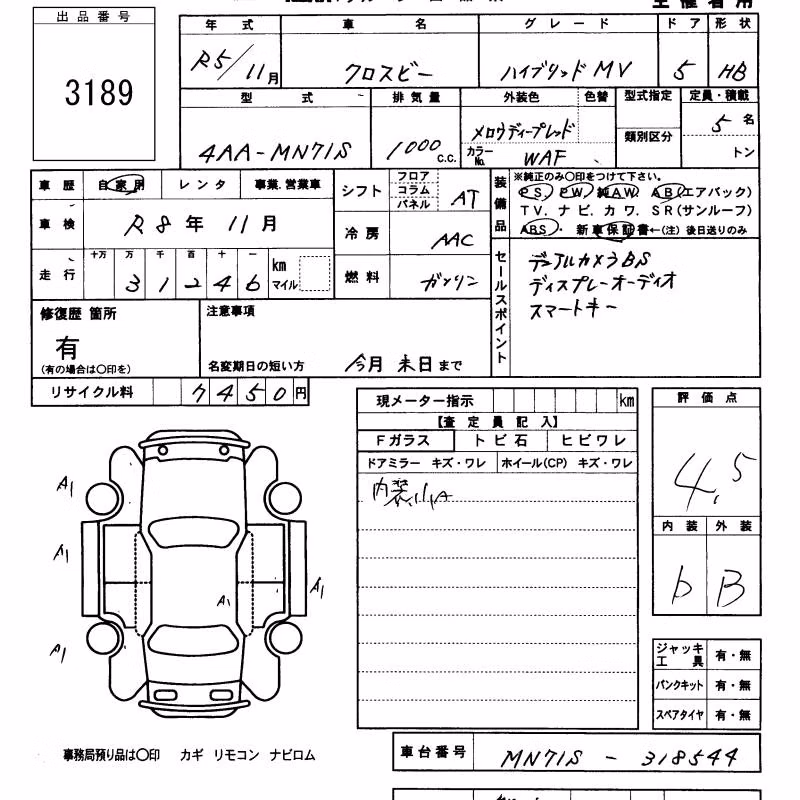 出品番号
3189
主催者用
年式 車名 グレード ドア 形状
R5/11月 クロスビー ハイブリッド MV 5 HB
型式 排気量 外装色 色替 型式指定 定員・積載
4AA-MN71S 1000 c.c. メロウディープレッド 類別区分 5名
カラーNo. WAF トン
車歴 自家用 レンタ 事業.営業車
シフト フロア コラム パネル AT
車検 R8年11月
冷房 AAC
走行 十万 万 千 百 十 一
31246 km マイル
燃料 ガソリン
装備品 ※純正のみ〇印をつけて下さい。
PS. PW. 純AW. AB(エアバック)
TV. ナビ. カワ. SR(サンルーフ)
ABS・ 新車保証書←(注)後日送りのみ
セールスポイント
デュアルカメラBS
ディスプレーオーディオ
スマートキー
修復歴 箇所
有
(有の場合は〇印を)
注意事項
名変期日の短い方 今月 末日 まで
リサイクル料 7450円
現メーター指示 km
【査定員記入】
Fガラス トビ石 ヒビワレ
ドアミラー キズ・ワレ ホイール(CP) キズ・ワレ
内装小A
評価点
4.5
内装 外装
b B
A1
A1
A1
A1
A1
ジャッキ工具 有・無
パンクキット 有・無
スペアタイヤ 有・無
事務局預り品は〇印 カギ リモコン ナビロム
車台番号 MN71S - 318544